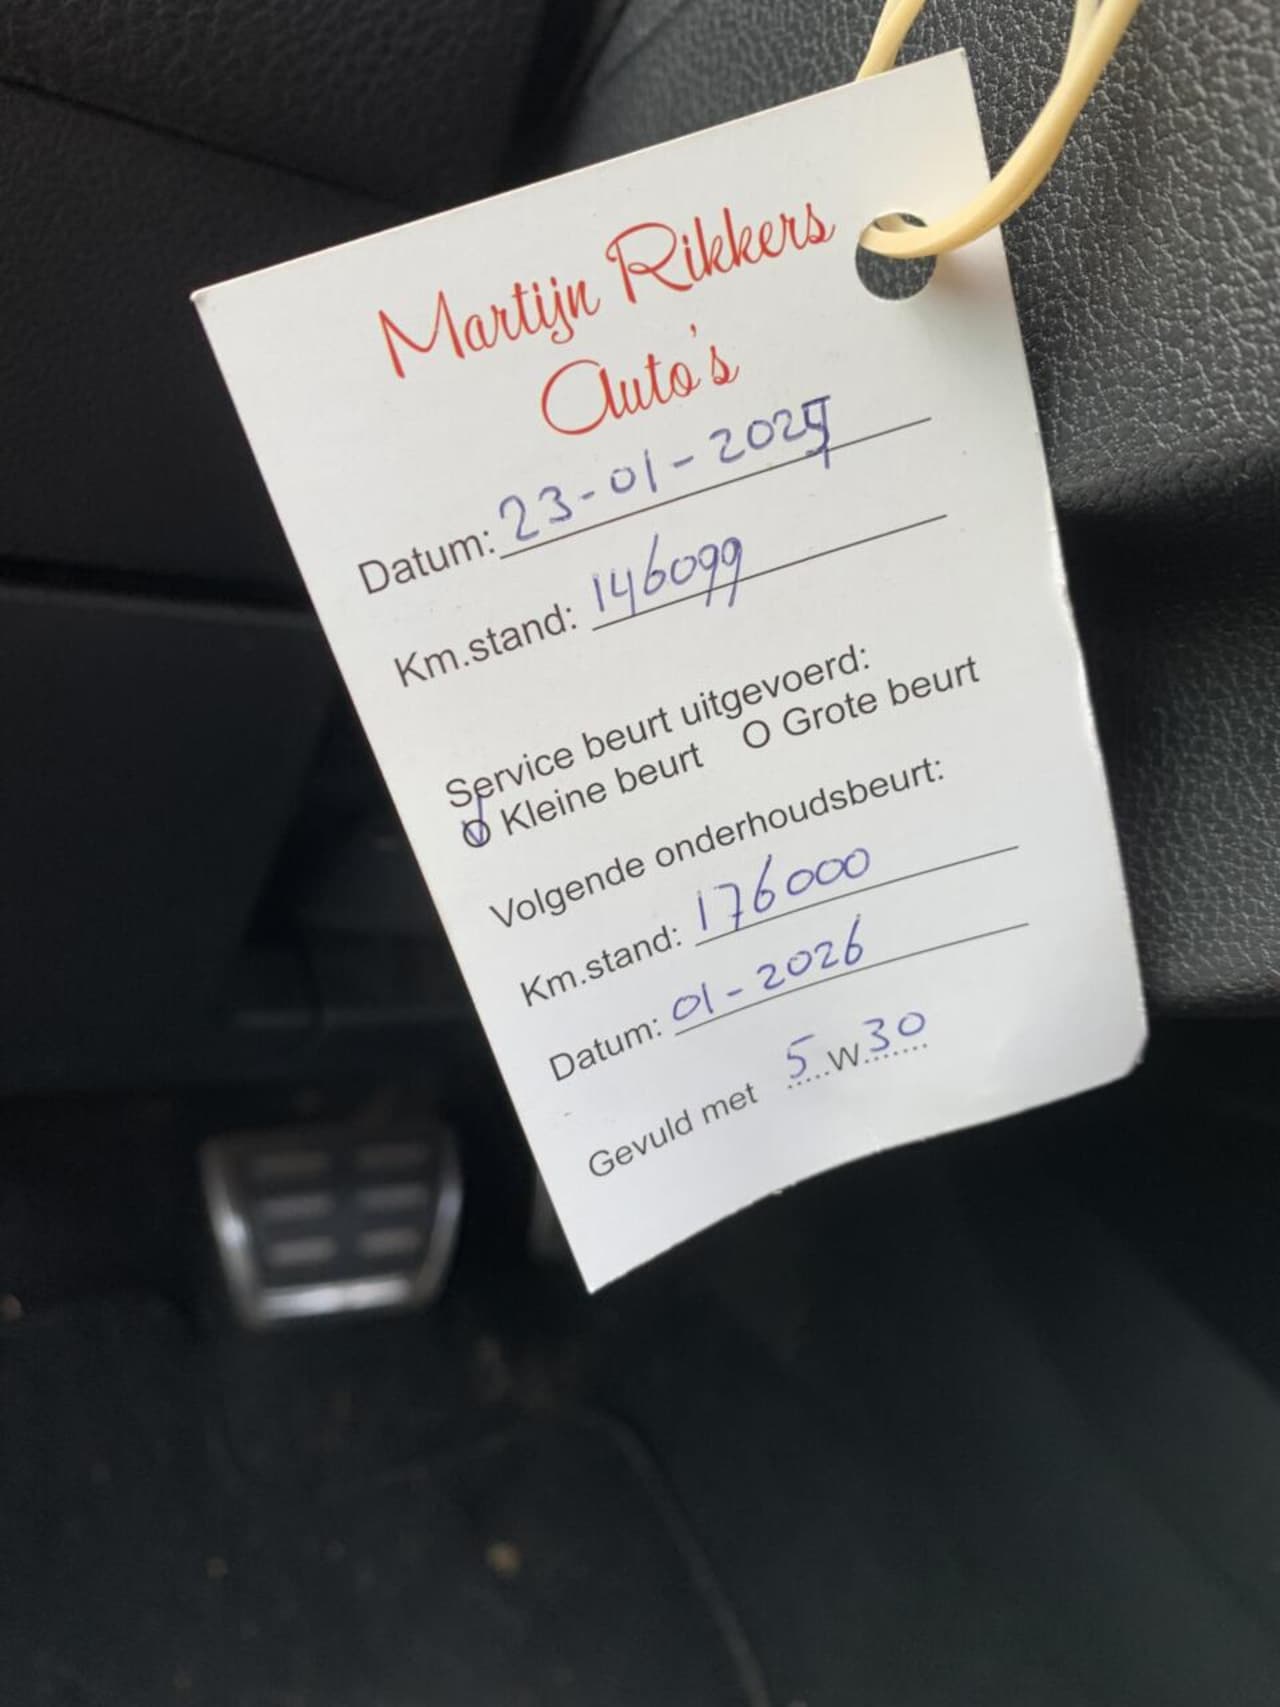 Martijn Rikkers
Auto's
Datum: 23-01-2024
Km.stand: 146099
Service beurt uitgevoerd:
O Kleine beurt O Grote beurt
Volgende onderhoudsbeurt:
Km.stand: 176000
Datum: 01-2026
Gevuld met 5 W 30